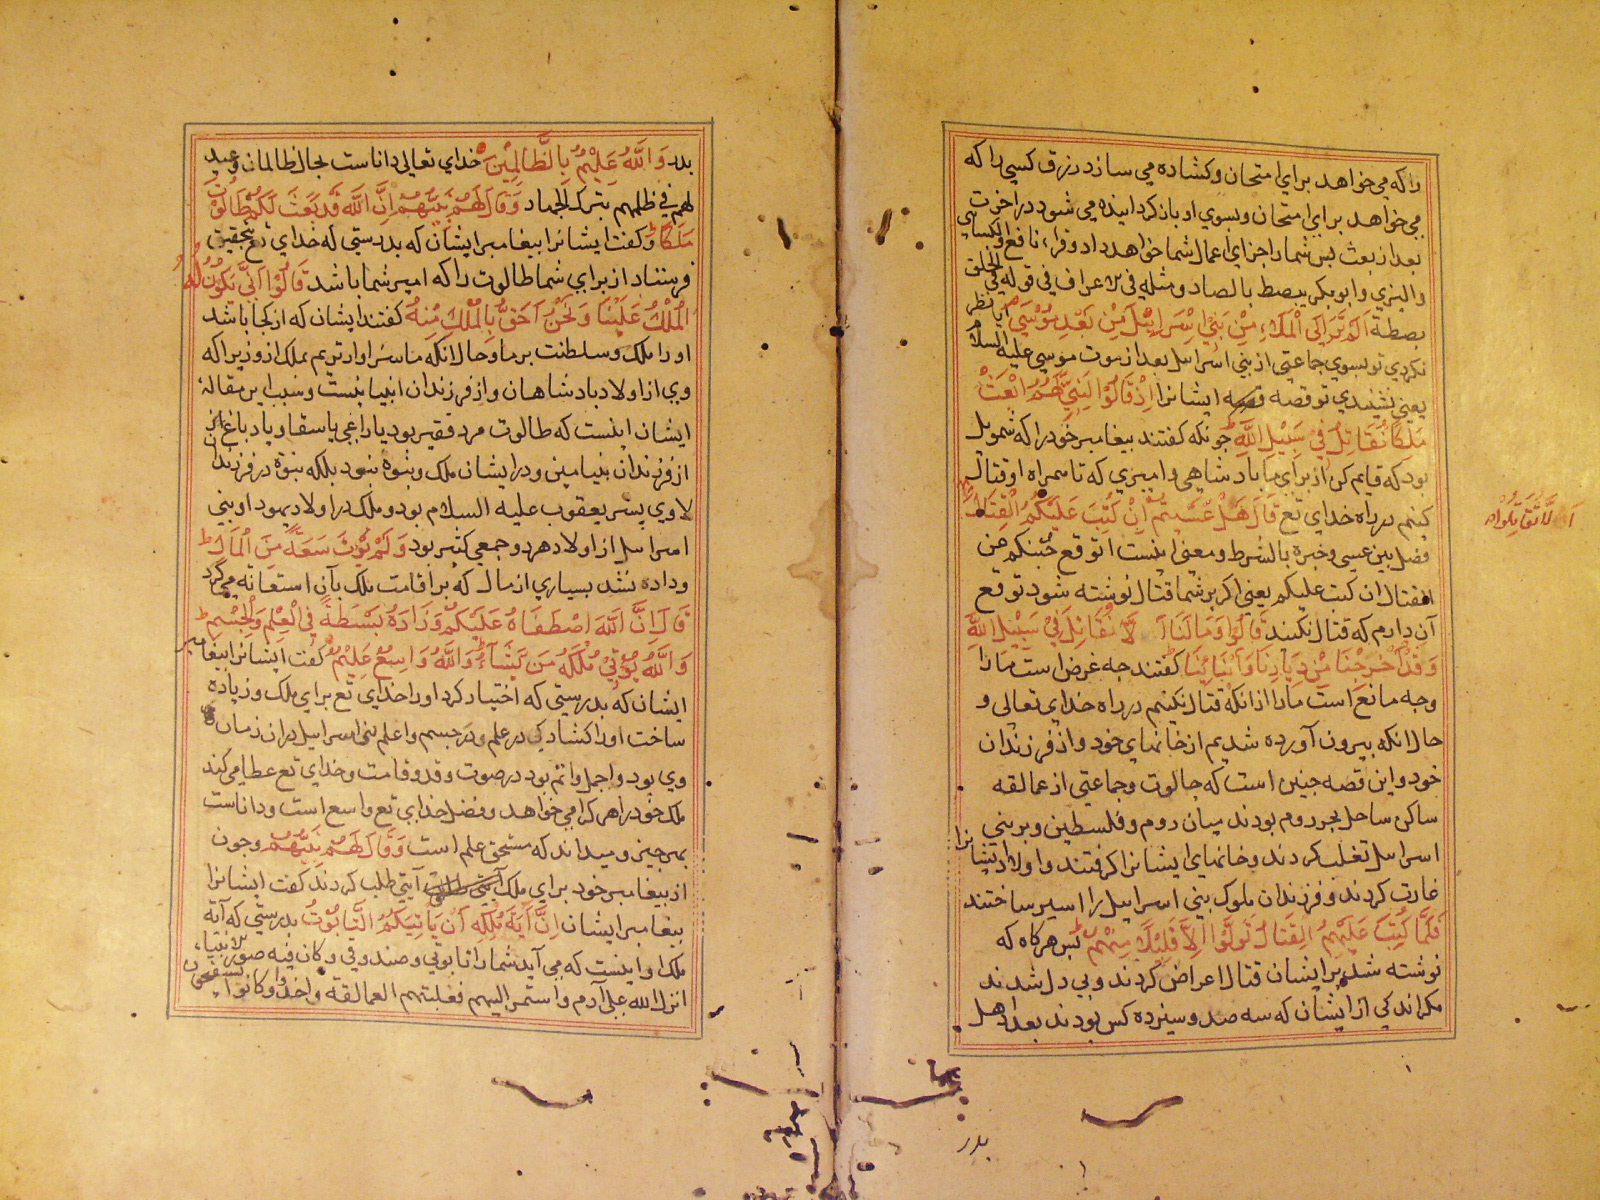 را که می خواهد برای امتحان و کشاده می سازد رزق کسی را که
می خواهد برای امتحان و بسوی او باز کردانیده می شود در آخرت
بعد از بعث پس شما را جزای اعمال شما خواهد داد و قراء نافع و الکسائی
و البزی و ابو بکر یبصط بالصاد و مثله فی الاعراف فی قوله فی الخلق
بصطة اَلَمْ تَرَ اِلَی الْمَلَاءِ مِنْ بَنِي اِسْرَائِيلَ مِنْ بَعْدِ مُوسَى آیا نظر
نکردی تو بسوی جماعتی از بنی اسرائیل بعد از موت موسی علیه السلام
یعنی نشنیدی تو قصه ایشانرا اِذْ قَالُوا لِنَبِيٍّ لَهُمُ ابْعَثْ
مَلِكًا نُقَاتِلْ فِي سَبِيلِ اللَّهِ چونکه کفتند بیغامبر خود را که شمویل
بود که قایم کن از برای ما بادشاهی و امیری که تا همراه او قتال
کنیم در راه خدای تع قَالَ هَلْ عَسَيْتُمْ اِنْ كُتِبَ عَلَيْكُمُ الْقِتَالُ
اَلَّا تُقَاتِلُوا
فصل بین عسی و خبره بالشرط و معنی اینست اتوقع جبنکم عن
القتال ان کتب علیکم یعنی اکر بر شما قتال نوشته شود توقع
آن دارم که قتال نکنید قَالُوا وَمَا لَنَا اَلَّا نُقَاتِلَ فِي سَبِيلِ اللَّهِ
وَقَدْ اُخْرِجْنَا مِنْ دِيَارِنَا وَاَبْنَائِنَا کفتند چه غرض است ما را
و چه مانع است ما را از آنکه قتال نکنیم در راه خدای تعالی و
حالانکه بیرون آورده شدیم از خانهای خود و از فرزندان
خود و این قصه چنین است که جالوت و جماعتی از عمالقه
ساکن ساحل بحر روم بودند میان دوم و فلسطین و بر بنی
اسرائیل تغلب کردند و خانهای ایشانرا کرفتند و اولاد ایشانرا
غارت کردند و فرزندان ملوک بنی اسرائیل را اسیر ساختند
فَلَمَّا كُتِبَ عَلَيْهِمُ الْقِتَالُ تَوَلَّوْا اِلَّا قَلِيلًا مِنْهُمْ پس هرکاه که
نوشته شد بر ایشان قتال اعراض کردند و بی دل شدند
مکر اندکی از ایشان که سه صد و سیزده کس بودند بعد اهل
بدر
بدر وَاللَّهُ عَلِيمٌ بِالظَّالِمِينَ خدای تعالی داناست بحال ظالمان وعید
لهم فی ظلمهم بترک الجهاد وَقَالَ لَهُمْ نَبِيُّهُمْ اِنَّ اللَّهَ قَدْ بَعَثَ لَكُمْ طَالُوتَ
مَلِكًا و کفت ایشانرا بیغامبر ایشان که بدرستی که خدای تع بتحقیق
فرستاد از برای شما طالوت را که امیر شما باشد قَالُوا اَنَّى يَكُونُ لَهُ
الْمُلْكُ عَلَيْنَا وَنَحْنُ اَحَقُّ بِالْمُلْكِ مِنْهُ کفتند ایشان که از کجا باشد
او را ملک و سلطنت بر ما و حالانکه ما سزاوارتریم بملک از و زیرا که
وی از اولاد بادشاهان و از فرزندان انبیا نیست و سبب این مقاله
ایشان اینست که طالوت مرد فقیر بود یا راعی یا سقا و یا دباغ
از فرزندان بنیامین و در ایشان ملک و نبوة نبود بلکه نبوة در فرزندان
لاوی پسر یعقوب علیه السلام بود و ملک در اولاد یهود او بنی
اسرائیل از اولاد هر دو جمعی کثیر بود وَلَمْ يُؤْتَ سَعَةً مِنَ الْمَالِ
و داده نشد بسیاری از مال که بر اقامت ملک بآن استعانه می کرد
قَالَ اِنَّ اللَّهَ اصْطَفَاهُ عَلَيْكُمْ وَزَادَهُ بَسْطَةً فِي الْعِلْمِ وَالْجِسْمِ
وَاللَّهُ يُؤْتِي مُلْكَهُ مَنْ يَشَاءُ وَاللَّهُ وَاسِعٌ عَلِيمٌ کفت ایشانرا بیغامبر
ایشان که بدرستی که اختیار کرد او را خدای تع برای ملک و زیاده
ساخت او را کشادکی در علم و در جسم و اعلم بنی اسرائیل در آن زمان
وی بود و اجمل و اتم بود در صورت و قد و قامت و خدای تع عطا می کند
ملک خود را هر کرا می خواهد و فضل خدای تع واسع است و داناست
بهر چیز و میداند که مستحق علم است وَقَالَ لَهُمْ نَبِيُّهُمْ و چون
از بیغامبر خود برای ملک آیتی طلب کردند کفت ایشانرا
بیغامبر ایشان اِنَّ آيَةَ مُلْكِهِ اَنْ يَأْتِيَكُمُ التَّابُوتُ بدرستی که آیة
ملک او اینست که می آید شما را تابوتی و صندوقی و کان فیه صور الانبیاء
انزل الله علی آدم و استمر الیهم فغلبتهم العمالقة و اخذوا و کانوا یستفتحون